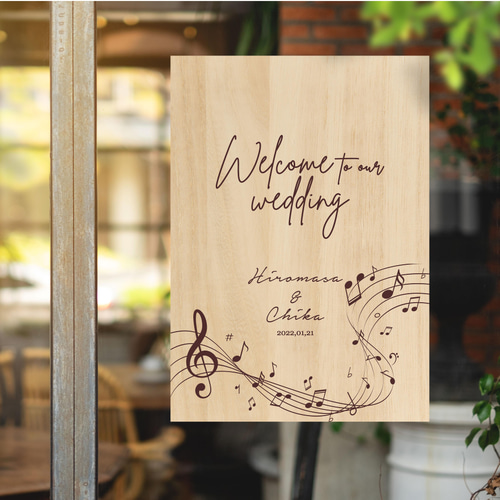 Welcome to our
wedding
Hiromasa
&
Chika
2022,01,21